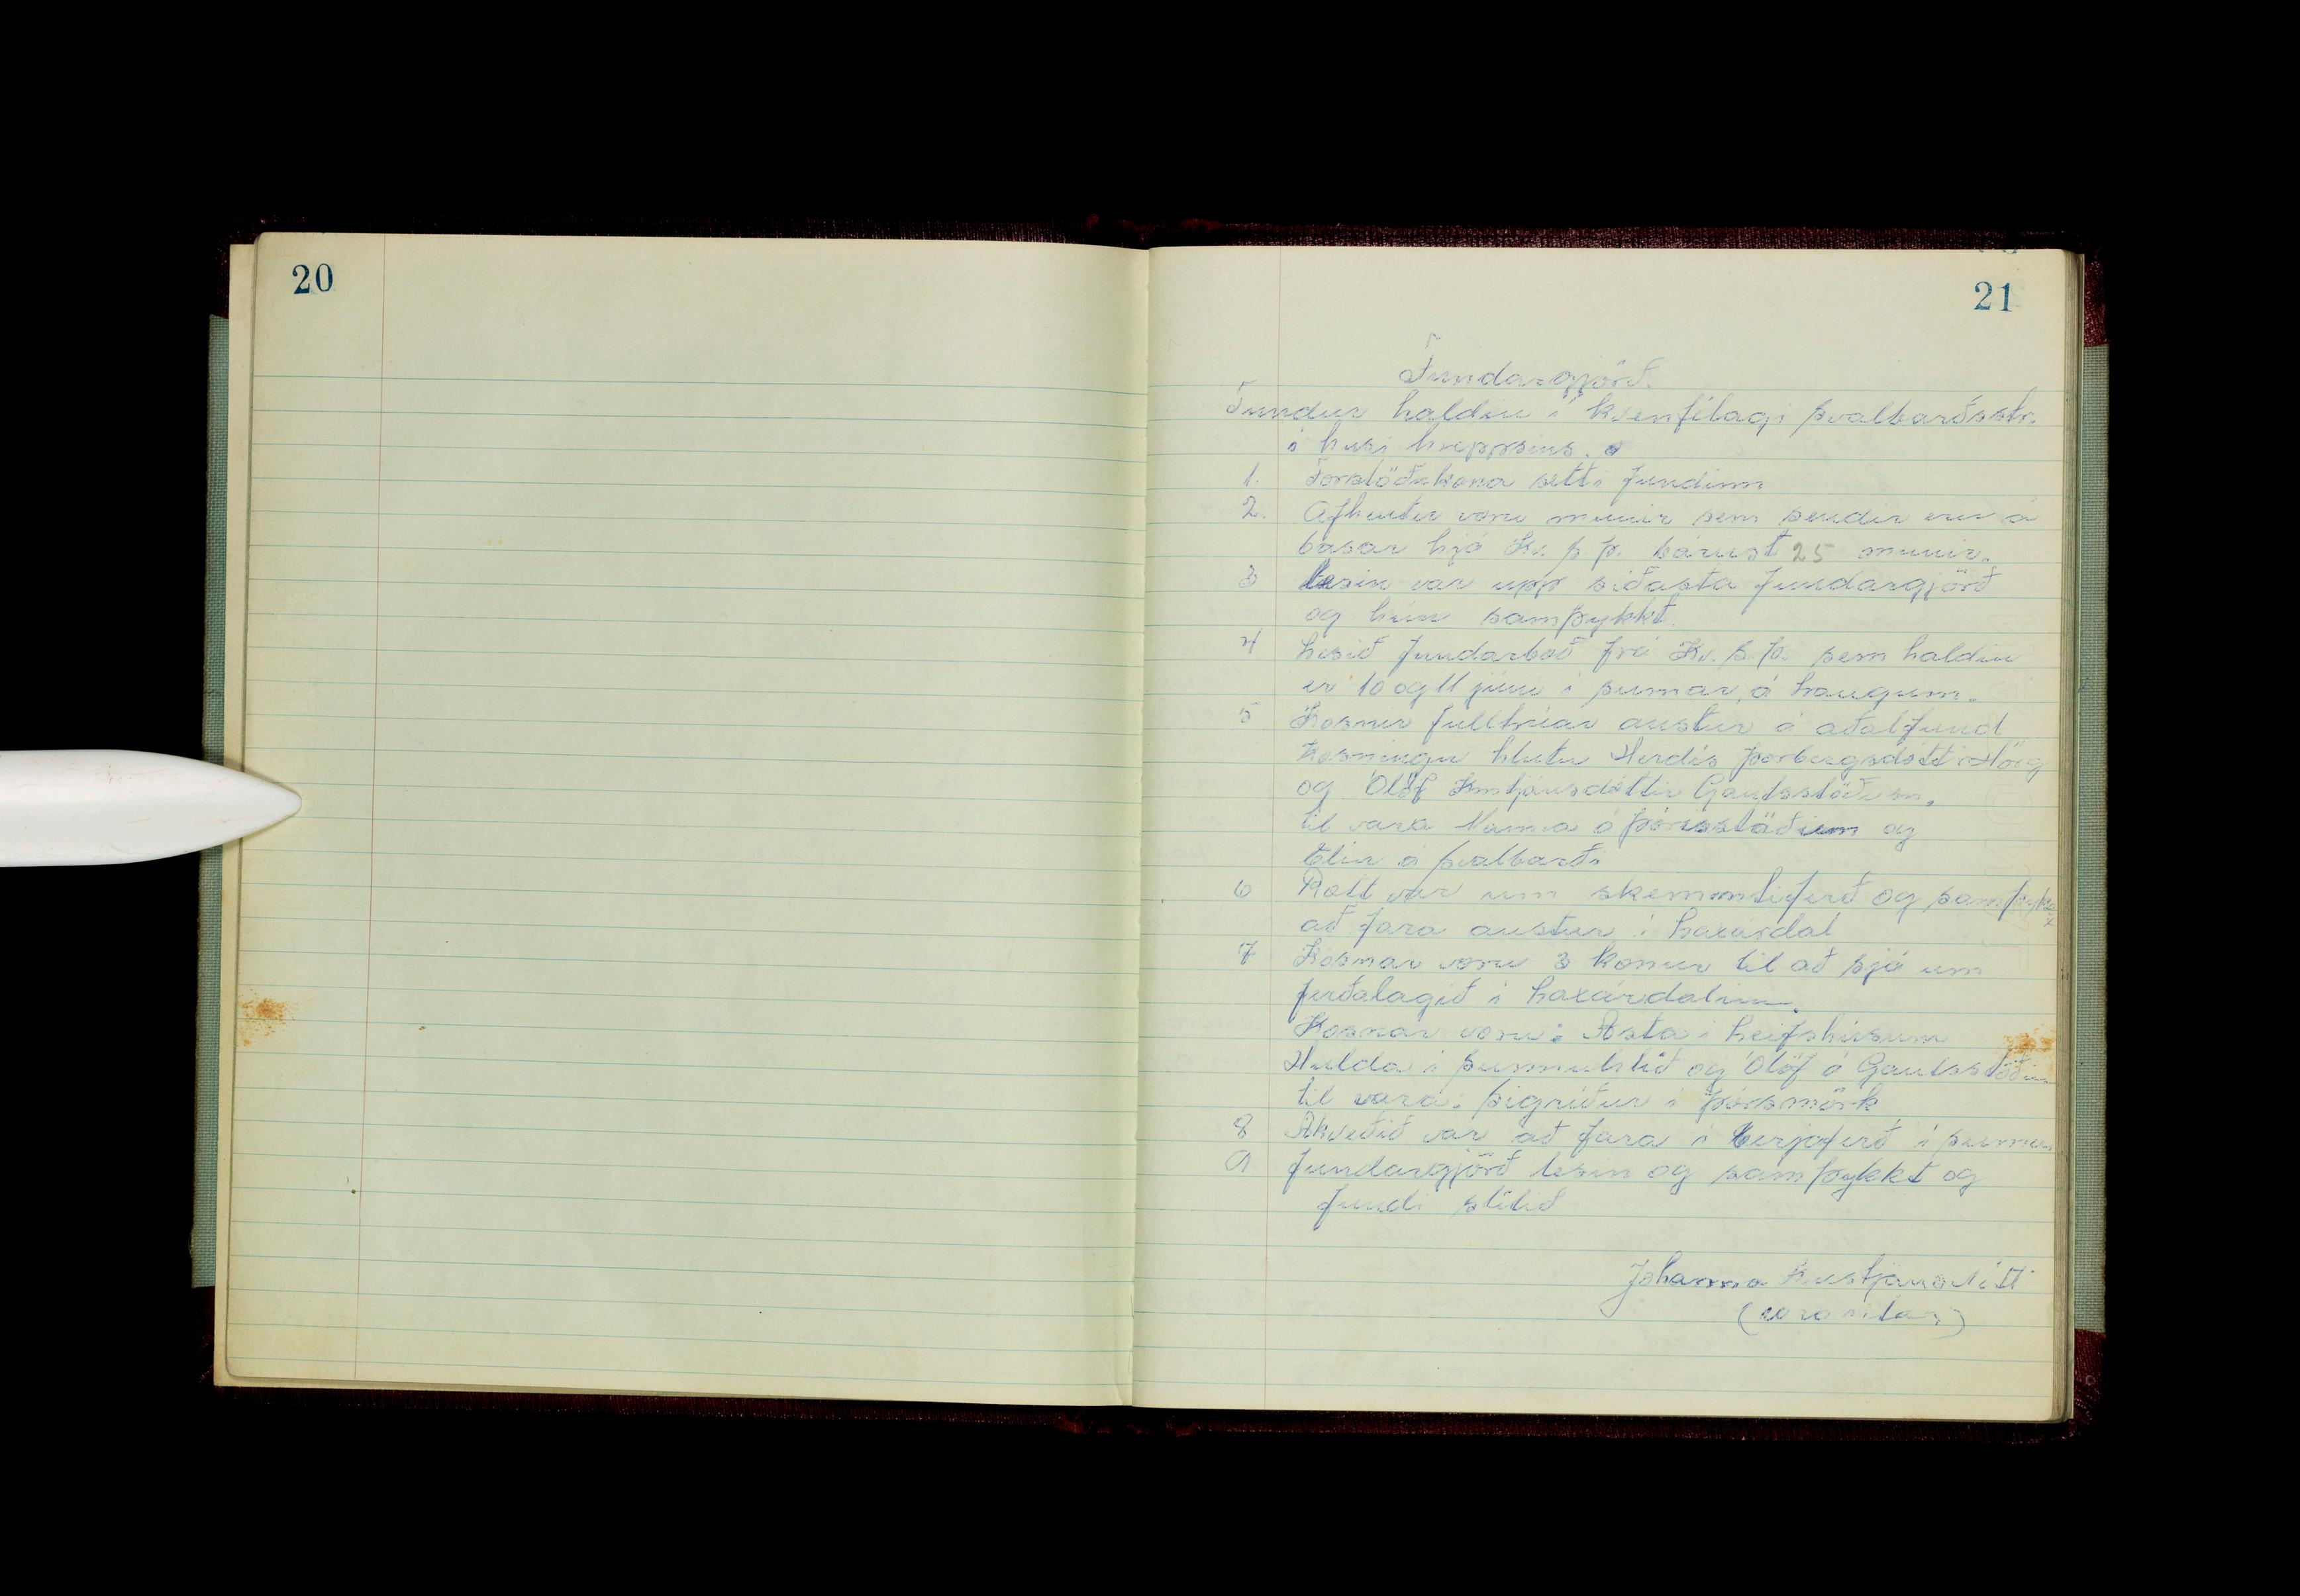 20
21
Fundargjörð.
Fundur haldin í kvenfélagi Svalbarðsstr.
í husi hreppsins.
1. Forstöðukona setti fundinn
2. Afhentir voru munir sem sendir eru á
basar hjá Kv. S. Þ. bárust 25 munir.
3 Lesin var upp siðasta fundargjörð
og hún samþykkt.
4 Lesið fundarboð frá Kv. S. Þ. sem haldin
er 10 og 11 júni i sumar, á Laugum.
5 Kosnir fulltrúar austur á aðalfund
Kosningu hlutu Herdís Þorbergsdótt
og Ólöf Kristjánsdóttir Gautsstöðum,
til vara Nanna á Þórisstöðum og
Elin á Svalbarði
6 Rætt var um skemmtiferð og samþykkt
að fara austur í Laxárdal
7 Kosnar voru 3 konur til að sjá um
ferðalagið í Laxárdalinn.
Kosnar voru: Ásta í Leifshúsum
Hulda í Sunnuhlið og Ólöf á Gautsstöðum
til vara: Sigriður i Þórsmörk
8 Akveðið var að fara i berjaferð í sumar
9 fundargjörð lesin og samþykkt og
fundi slitið
Jóhanna Kristjánsdótt
(vara ritari)